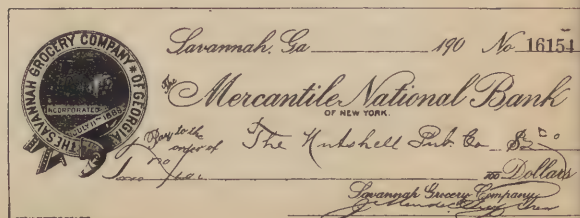 THE SAVANNAH GROCERY COMPANY * OF GEORGIA
INCORPORATED
JULY 11TH 1889
Savannah, Ga 190 No. 16154
The Mercantile National Bank
OF NEW YORK.
Pay to the order of The Nutshell Pub. Co $2.00
no/100 Dollars
Savannah Grocery Company